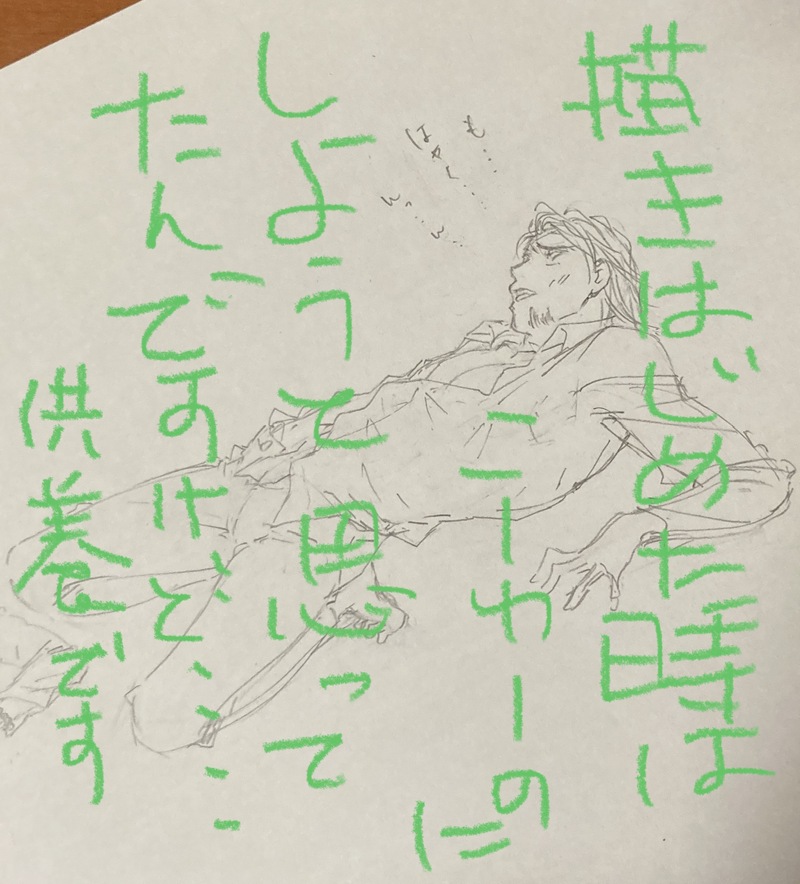 描きはじめた時は
ニーカーのに
しようと思って
たんですけど、、、
供養です
も…
はやく…